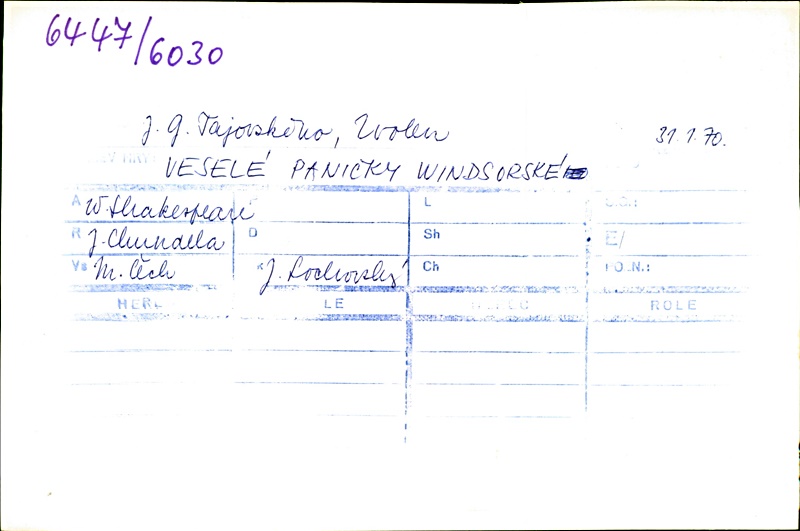 6447/6030
J. G. Tajovského, Zvolen 31.1.70.
VESELÉ PANIČKY WINDSORSKÉ
A W. Shakespeare L
R J. Chundela D Sh E/
Vs M. Čech K J. Lochovský Ch
HEREC ROLE